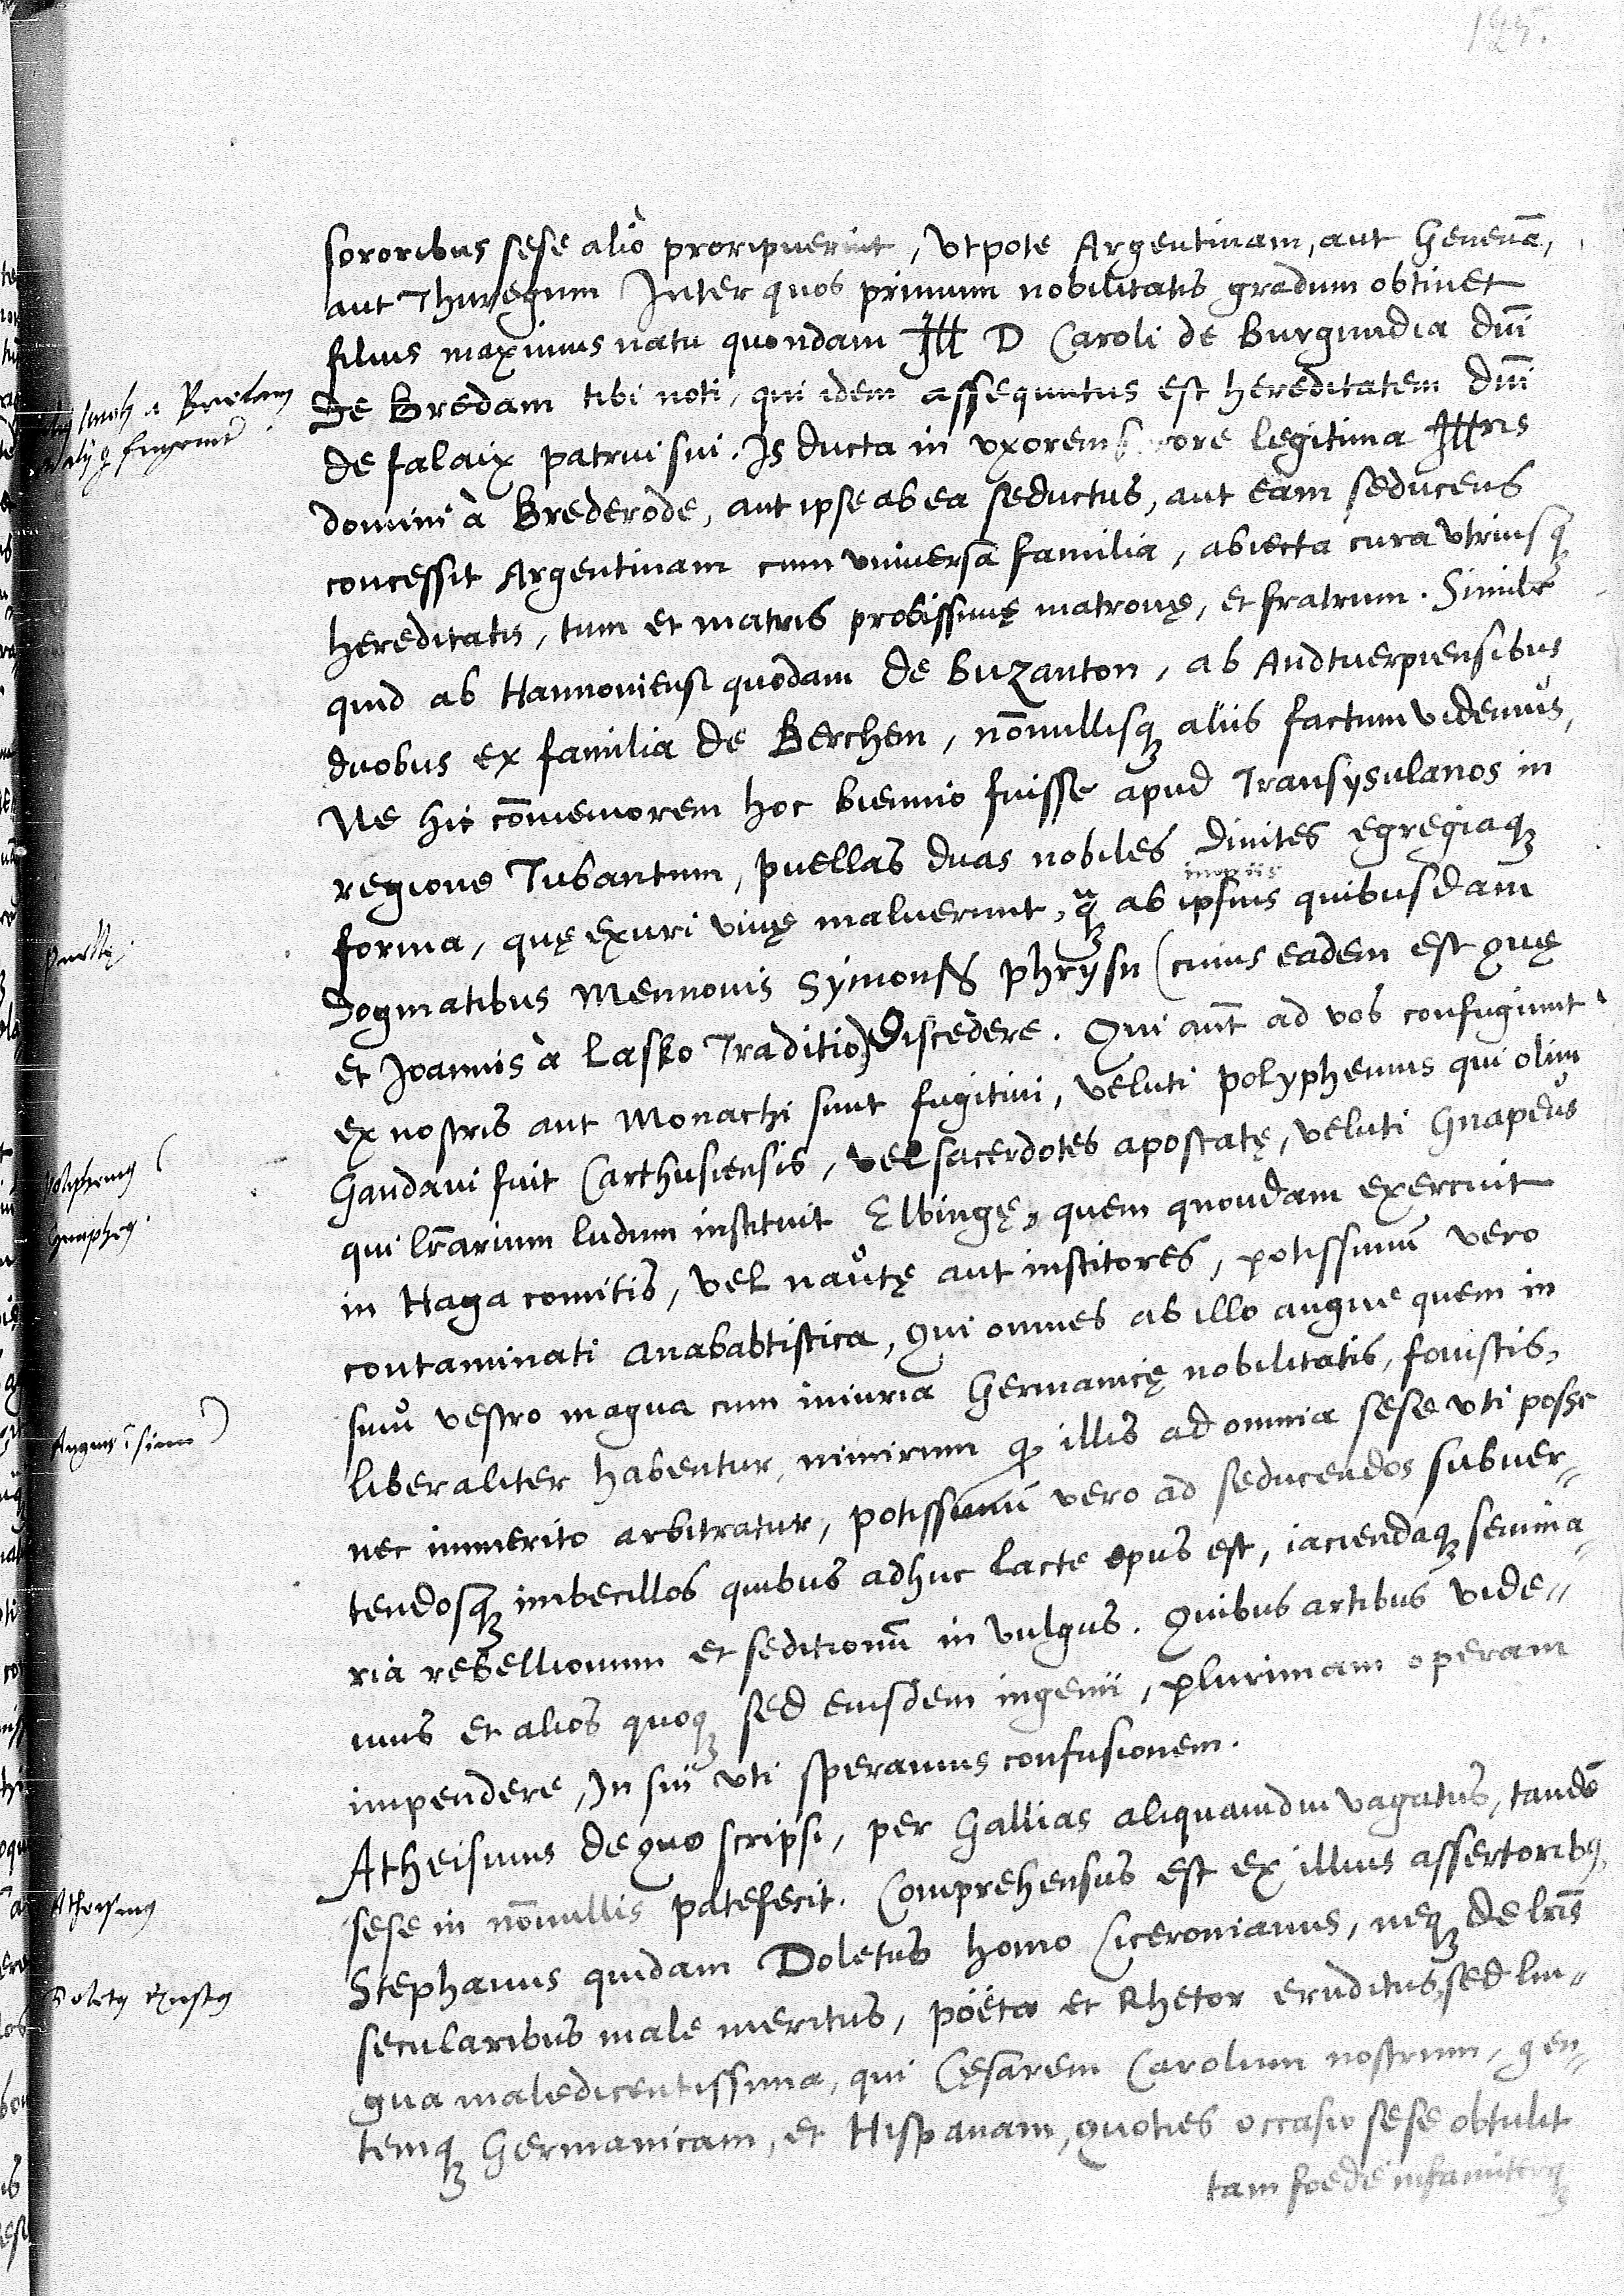 125.
sororibus sese aliò proripuerint, vtpote Argentinam, aut Geneuã,
aut Thuregum Inter quos primum nobilitatis gradum obtinet
filius maximus natu quondam Ill D Caroli de Burgundia dnĩ
de Bredam tibi noti, qui idem assequutus est hereditatem dnĩ
de falaix patrui sui. Is ducta in vxorem sorore legitima Illris
domini à Brederode, aut ipse ab ea seductus, aut eam seducens
concessit Argentinam cum vniuersa familia, abiecta cura vtriusq3
hereditatis, tum et matris probissimę matronę, et fratrum. Simile
quid ab Hannoniensi quodam de Buzanton, ab Andtuerpiensibus
duobus ex familia de Berchem, nõnullisq3 aliis factum videmus,
Ne hic cõmemorem hoc biennio fuisse apud Transysulanos in
regione Tubantum, puellas duas nobiles diuites egregiaq3
forma, quę exuri viuę maluerunt, q̃3 ab ipsius quibusdam
impiis
dogmatibus Mennonis Symonis phrysii (cuius eadem est quę
et Joannis à Lasko Traditio) discedere. Qui aũt ad vos confugiunt
ex nostris aut Monachi sunt fugitiui, veluti polyphemus qui olim
Gandaui fuit Carthusiensis, vel sacerdotes apostatę, veluti Gnapeus
qui lr̃arium ludum instituit Elbingę, quem quondam exercuit
in Haga comitis, vel nautę aut institores, potissimũ vero
contaminati anababtistica, qui omnes ab illo angue quem in
sinu vestro magna cum iniuria Germanicę nobilitatis, fouistis,
liberaliter habentur, nimirum q illis ad omnia sese vti posse
nec immerito arbitratur, potissimũ vero ad seducendos subuer-
tendosq3 imbecillos quibus adhuc lacte opus est, iaciendaq3 semina
ria rebellionum et seditionũ in vulgus. Quibus artibus vide-
mus et alios quoq3 sed eiusdem ingenii, plurimam operam
impendere, In suũ vti speramus confusionem.
Atheismus de quo scripsi, per Gallias aliquamdiu vagatus, tandẽ
sese in nõnullis patefecit. Comprehensus est ex illius assertoribus,
Stephanus quidam Doletus homo Ciceronianus, neq3 de lr̃is
secularibus male meritus, pöeta et Rhetor eruditus, sed lin-
gua maledicentissima, qui Cęsarem Carolum nostrum, gen-
temq3 Germanicam, et Hispanam, quoties occasio sese obtulit
tam foede infamiterq3
Puellę.
Poliphemus
Gnapheus.
Anguis (sinu)
Atheismus
Doletus exustus